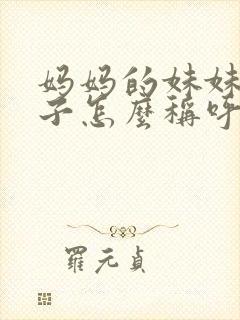 妈妈的妹妹
子怎麼稱呼
羅元貞